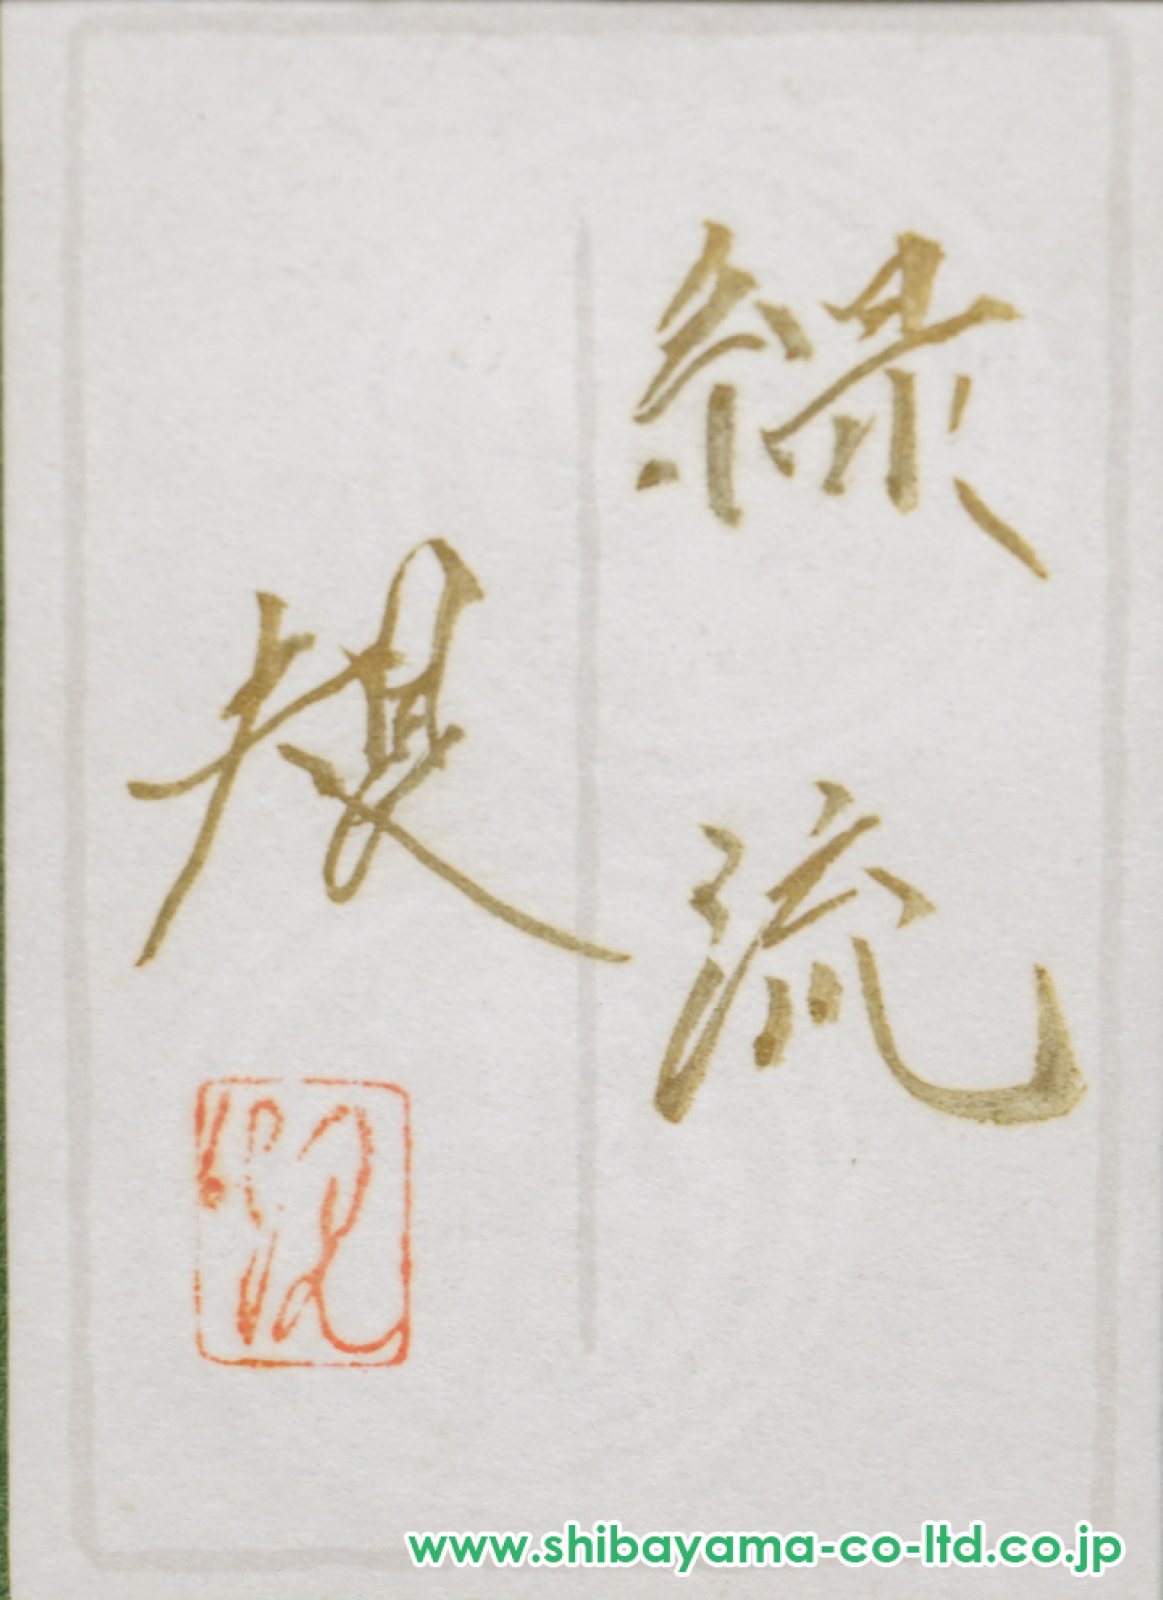 緑流
www.shibayama-co-ltd.co.jp